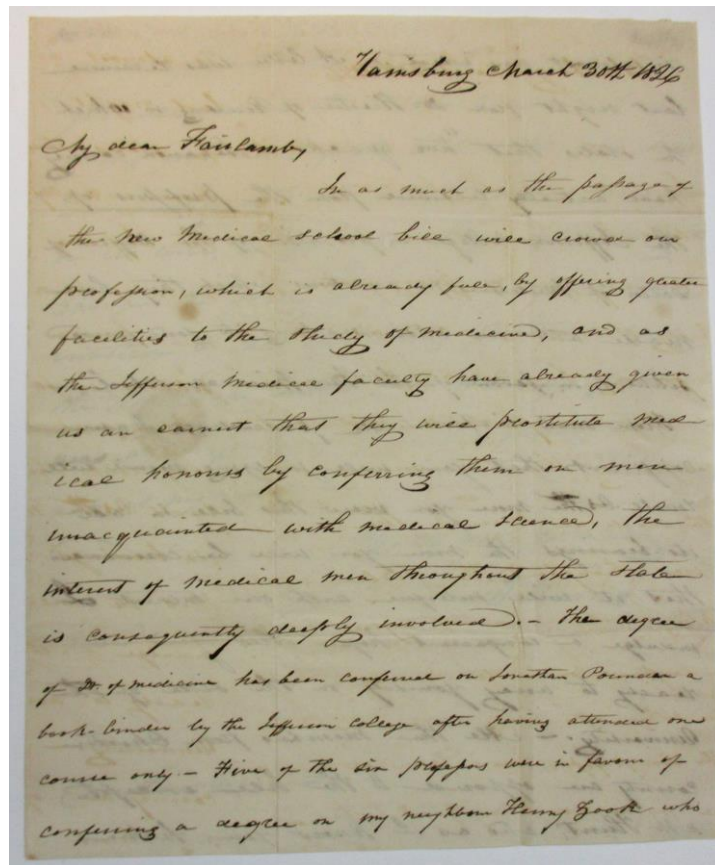 Harrisburg March 30th 1826
My dear Fairlamb,
In as much as the passage of
the New Medical school bill will crowd our
profession, which is already full, by offering greater
facilities to the study of medicine, and as
the Jefferson Medical faculty have already given
us an earnest that they will prostitute med-
ical honours by conferring them on men
unacquainted with medical science, the
interest of medical men throughout the state
is consequently deeply involved. – The degree
of Dr. of medicine has been conferred on Jonathan a
book-binder by the Jefferson College after having attended one
course only – Five of the six professors were in favour of
conferring a degree on my neighbour Henry Zook who